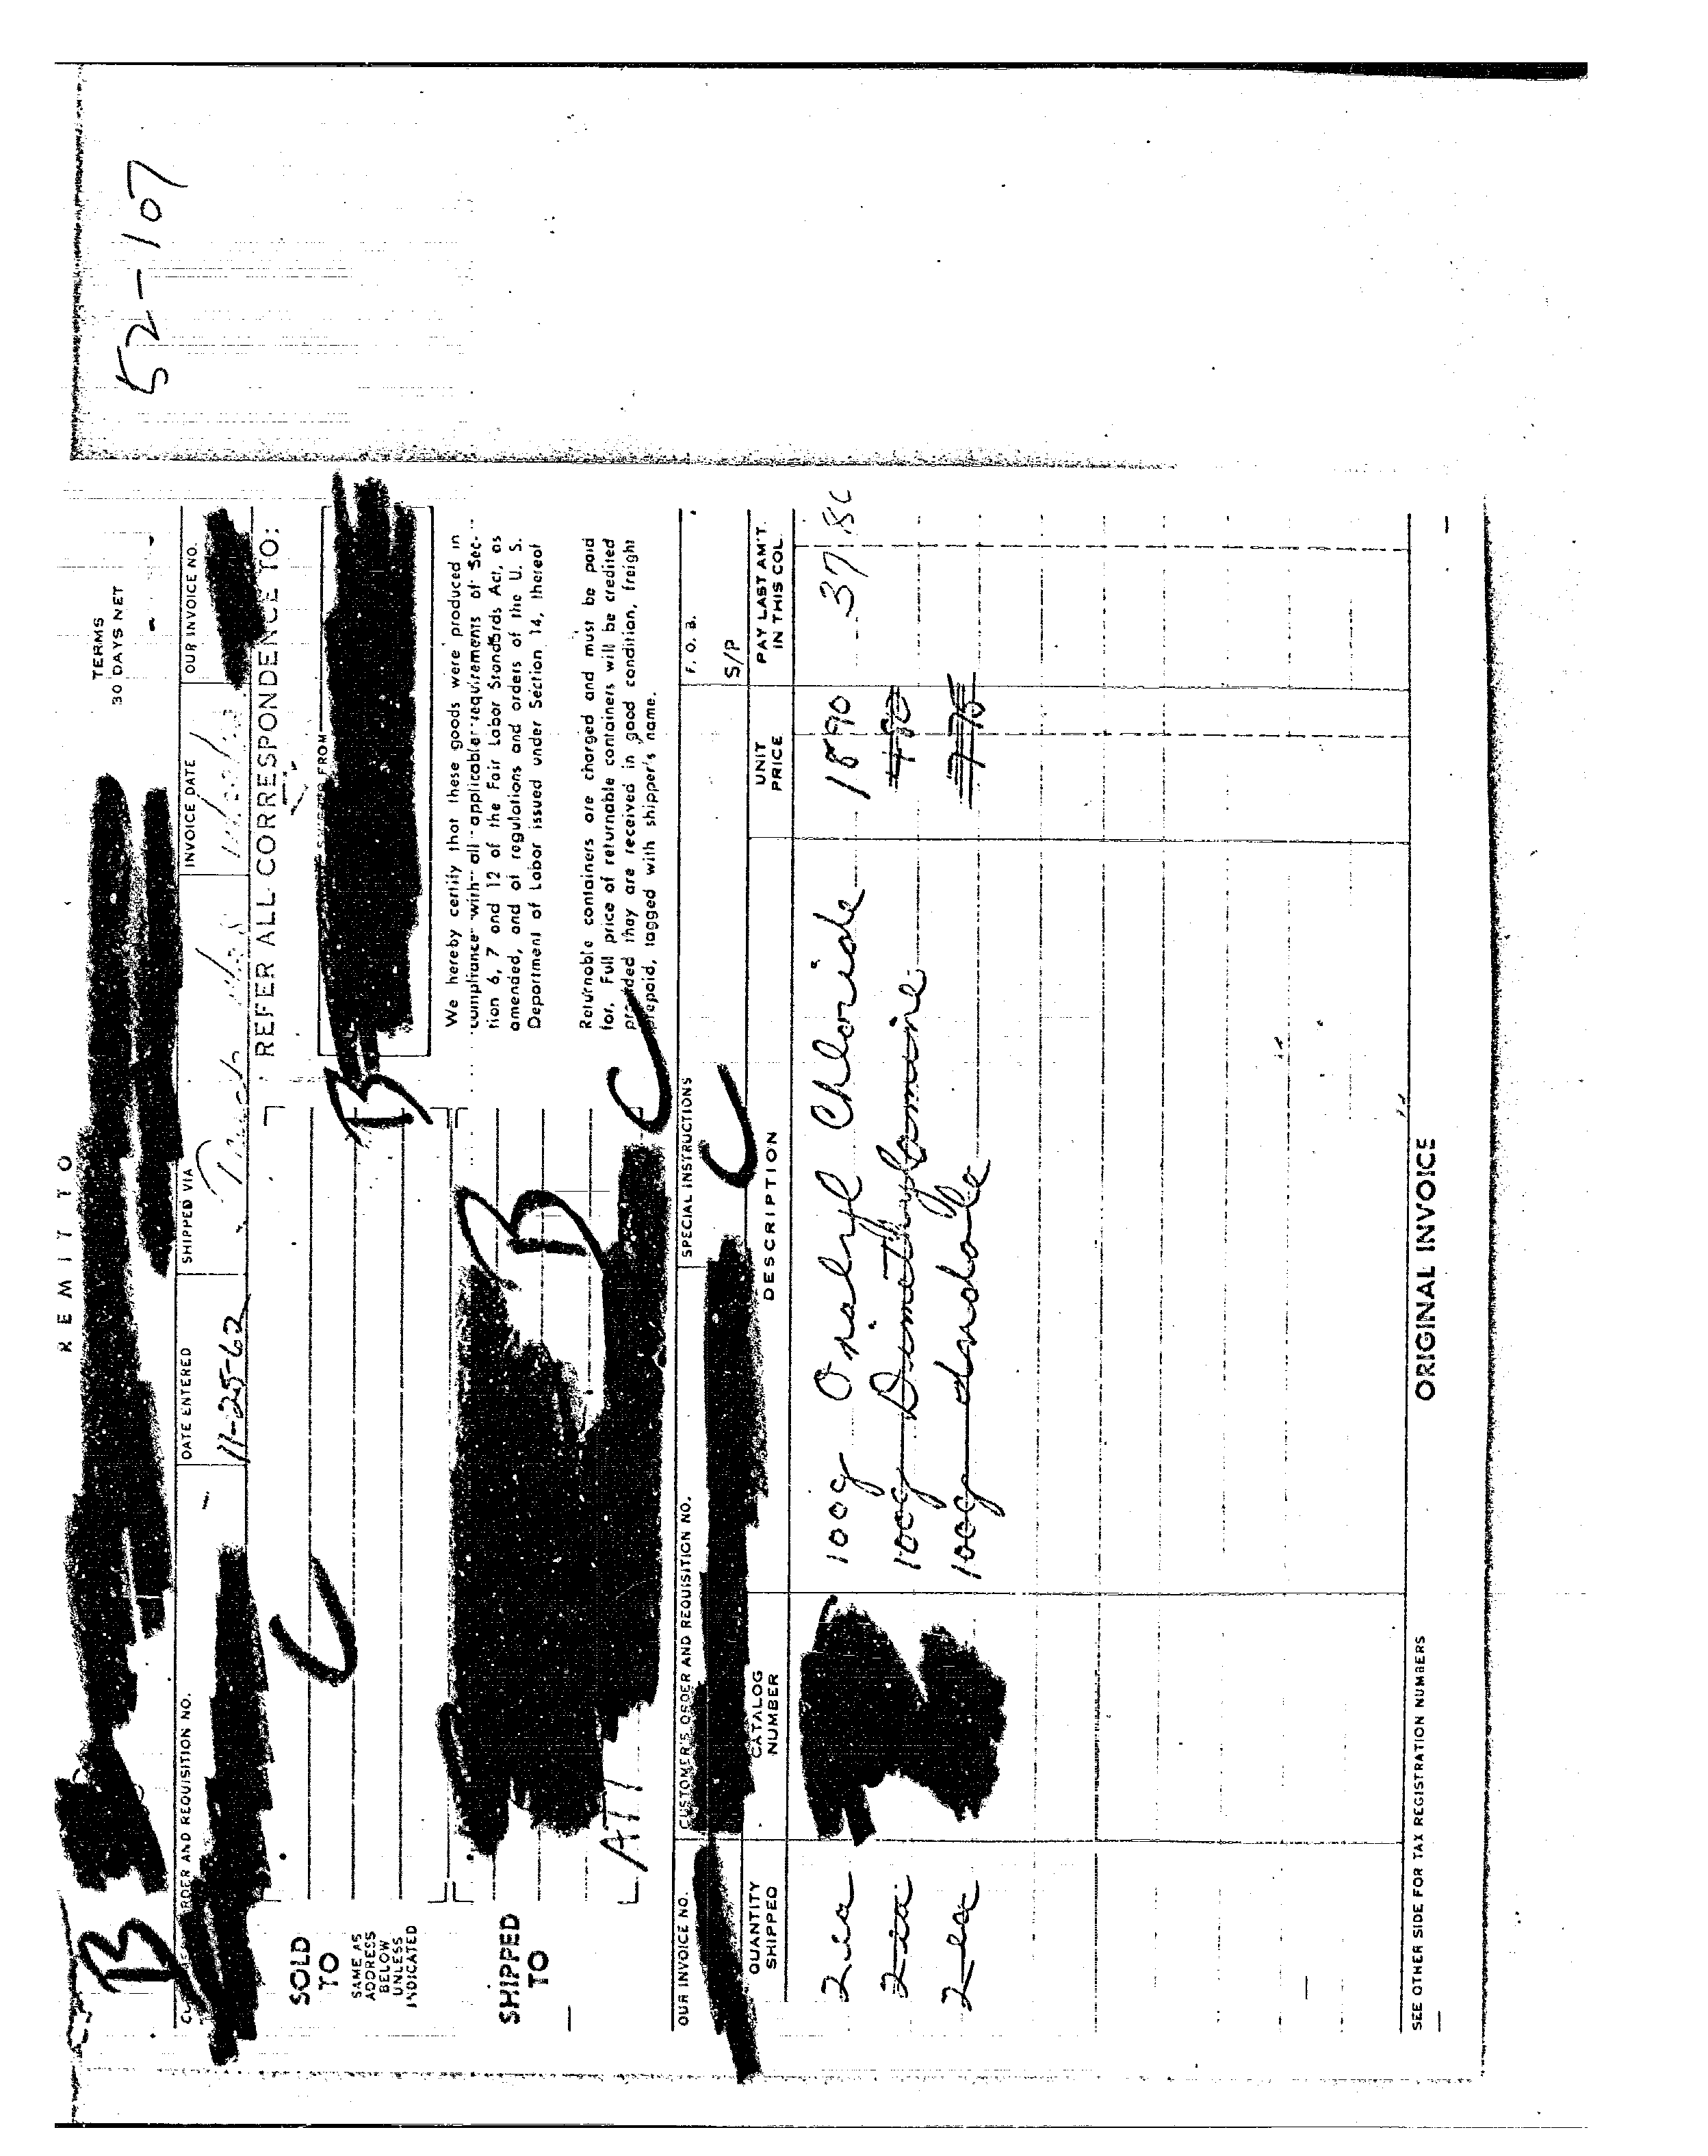 52-107
REMIT TO
TERMS
30 DAYS NET
ORDER AND REQUISITION NO.
DATE ENTERED
SHIPPED VIA
INVOICE DATE
OUR INVOICE NO.
11-25-62
REFER ALL CORRESPONDENCE TO:
SOLD
TO
SAME AS
ADDRESS
BELOW
UNLESS
INDICATED
C
B
FROM
B
We hereby certify that these goods were produced in
compliance with all applicable requirements of Sec-
tion 6, 7 and 12 of the Fair Labor Standards Act, as
amended, and of regulations and orders of the U. S.
Department of Labor issued under Section 14, thereof
Returnable containers are charged and must be paid
for. Full price of returnable containers will be credited
provided they are received in good condition, freight
prepaid, tagged with shipper's name.
SHIPPED
TO
B
ATT
C
OUR INVOICE NO.
CUSTOMER'S ORDER AND REQUISITION NO.
SPECIAL INSTRUCTIONS
F. O. B.
C
S/P
QUANTITY
SHIPPED
CATALOG
NUMBER
DESCRIPTION
UNIT
PRICE
PAY LAST AM'T.
IN THIS COL.
2 ea 100g Oxalyl Chloride 18 90 37 80
2 ea 100g Dimethylamine
2 ea 100g
SEE OTHER SIDE FOR TAX REGISTRATION NUMBERS
ORIGINAL INVOICE